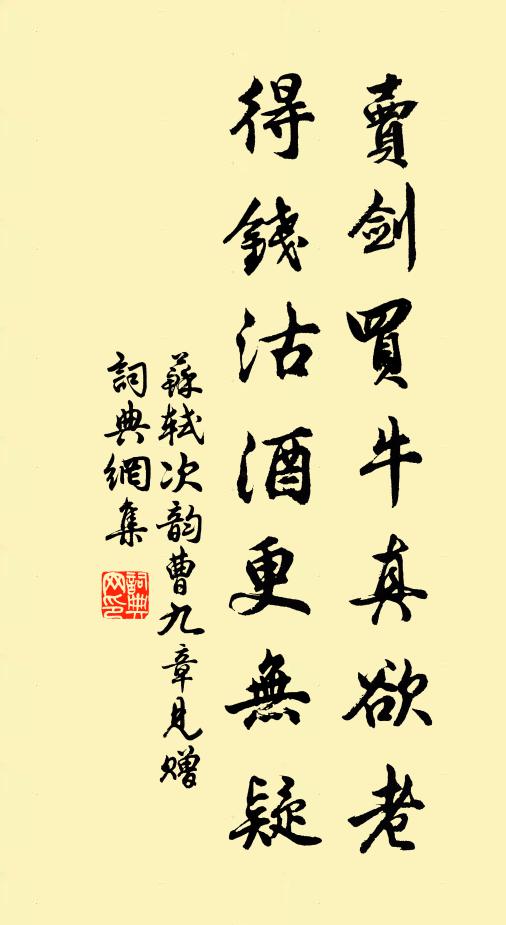 賣劍買牛真欲老
得錢沽酒更無疑
蘇軾次韵曹九章見赠
詞典網集
詞典
网印